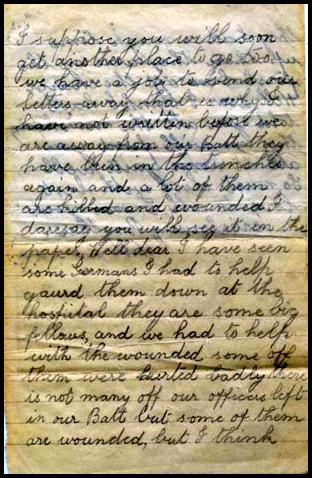 I suppose you will soon
get another place to go too
we have a job to send our
letters away that is why I
have not written before we
are away from our Batt they
have bin in the trenches
again and a lot of them
are killed and wounded I
daresay you will see it in the
paper, Well dear I have seen
some Germans I had to help
gaurd them down at the
hospital they are some big
fellows, and we had to help
with the wounded some off
them were hurted badly there
is not many off our officers left
in our Batt but some of them
are wounded, but I think